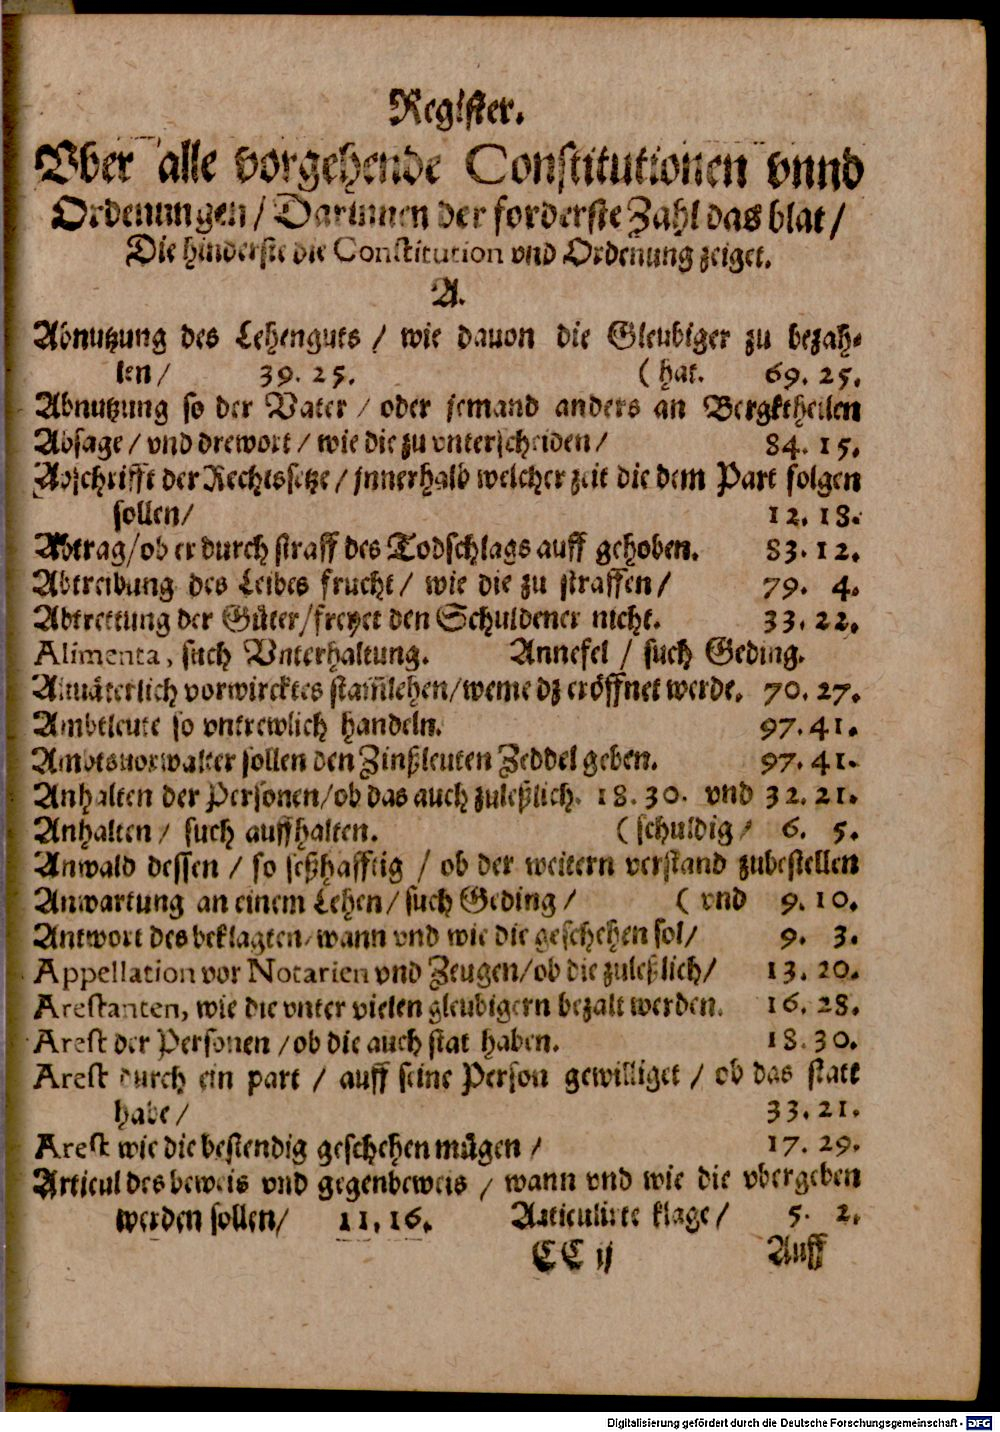 Register.
Vber alle vorgehende Constitutionen vnnd
Ordenungen / Darinnen der forderste Zahl das blat /
Die hinderste die Constitution vnd Ordenung zeiget.
A.
Abnutzung des Lehenguts / wie dauon die Gleubiger zu bezah-
len / 39. 25. ( hat. 69. 25.
Abnutzung so der Vater / oder jemand anders an Bergktheilen
Absage / vnd drewort / wie die zu vnterscheiden / 84. 15.
Abschrifft der Rechtssetze / jnnerhalb welcher zeit die dem Part folgen
sollen / 12. 18.
Abtrag / ob er durch straff des Todschlags auff gehoben. 83. 12.
Abtreibung des Leibes frucht / wie die zu straffen / 79. 4.
Abtrettung der Güter / freyet den Schuldener nicht. 33. 22.
Alimenta, such Vnterhaltung. Annefel / such Geding.
Altuäterlich vorwircktes stam̃lehen / weme dz eröffnet werde. 70. 27.
Ambtleute so vntrewlich handeln. 97. 41.
Ambtsuorwalter sollen den Zinßleuten Zeddel geben. 97. 41.
Anhalten der Personen / ob das auch zuleßlich. 18. 30. vnd 32. 21.
Anhalten / such auffhalten. ( schuldig / 6. 5.
Anwald dessen / so seßhafftig / ob der weitern verstand zubestellen
Anwartung an einem Lehen / such Geding / ( vnd 9. 10.
Antwort des beklagten / wann vnd wie die geschehen sol / 9. 3.
Appellation vor Notarien vnd Zeugen / ob die zuleßlich / 13. 20.
Arestanten, wie die vnter vielen gleubigern bezalt werden. 16. 28.
Arest der Personen / ob die auch stat haben. 18. 30.
Arest durch ein part / auff seine Person gewilliget / ob das statt
habe / 33. 21.
Arest wie die bestendig geschehen mügen / 17. 29.
Articul des beweis vnd gegenbeweis / wann vnd wie die vbergeben
werden sollen / 11. 16. Articulirte klage / 5. 2.
CC ij Auff
Digitalisierung gefördert durch die Deutsche Forschungsgemeinschaft - DFG